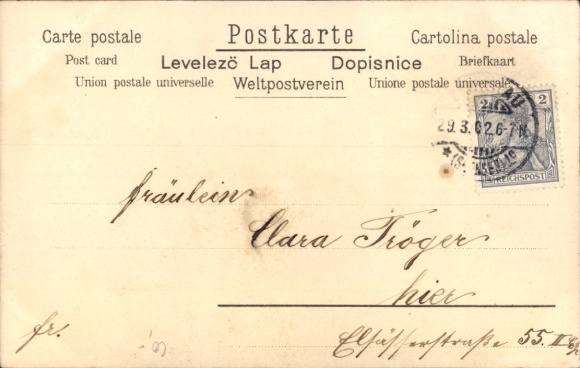 Carte postale Postkarte Cartolina postale
Post card Levelezö Lap Dopisnice Briefkaart
Union postale universelle Weltpostverein Unione postale universale
AU
2 2
29.3.02.6-7N.
REICHSPOST
fräulein
Clara Tröger
hier
fr. Elsässerstraße 55. II